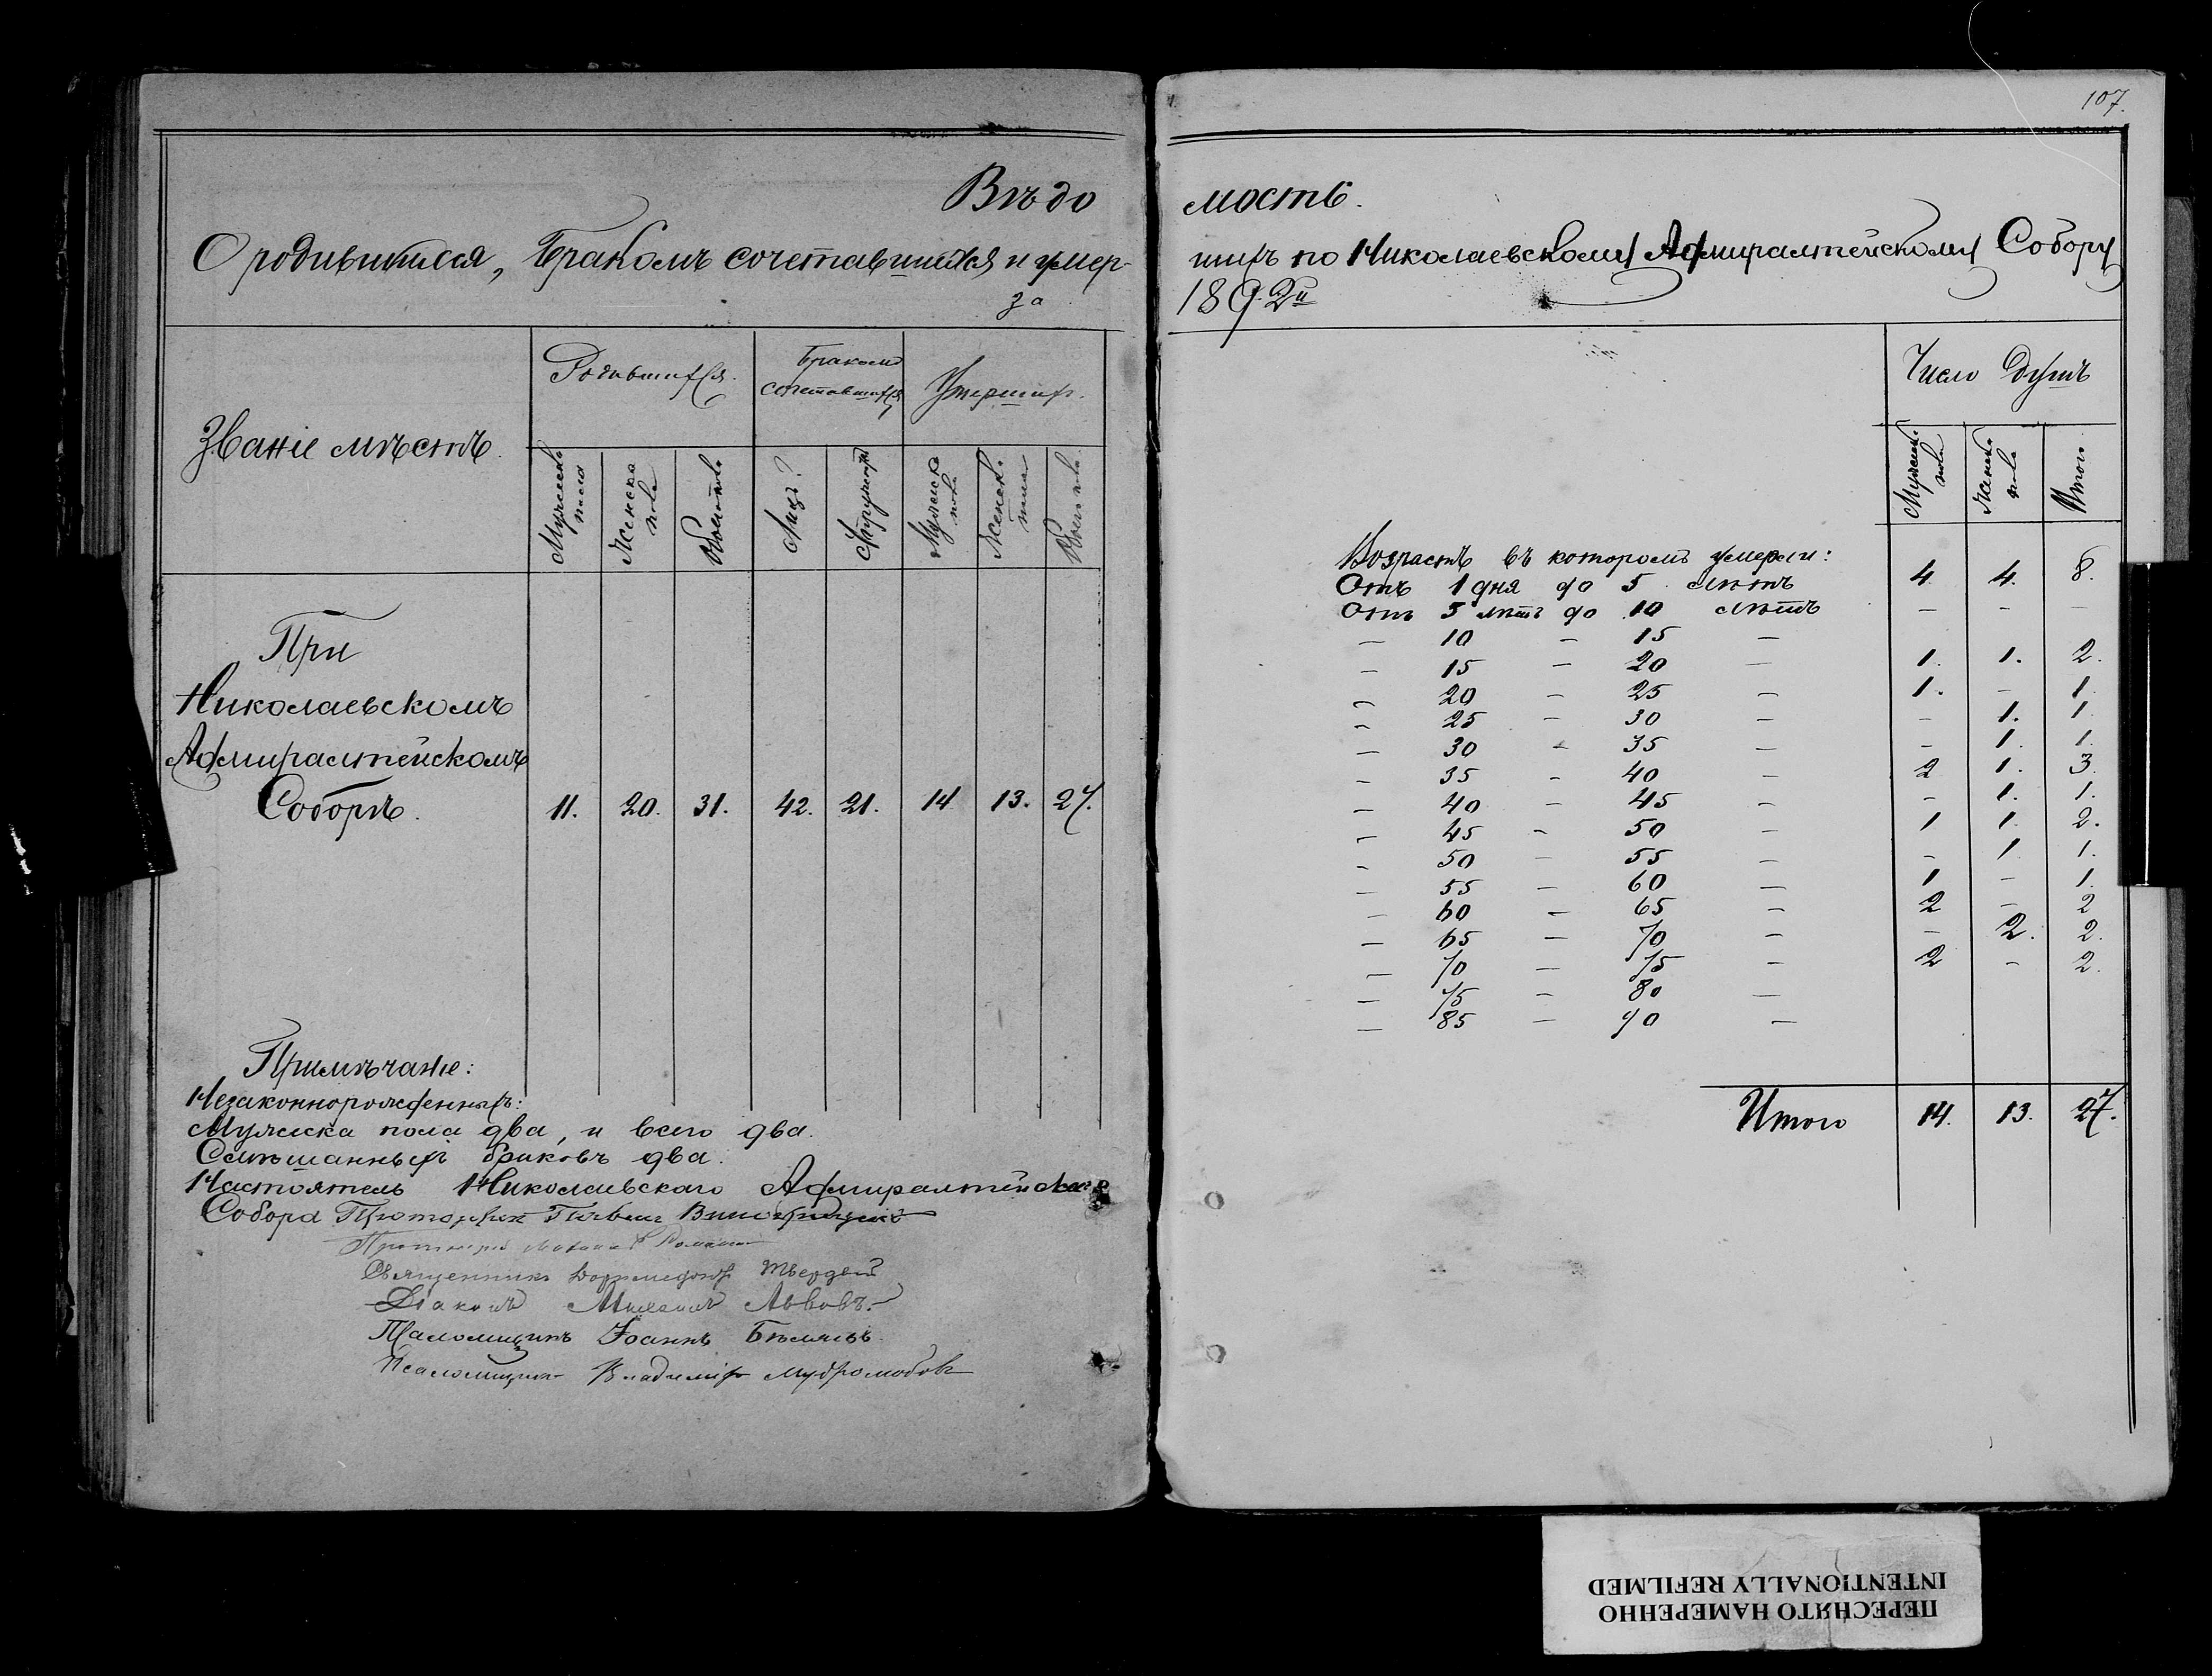 107.
Вѣдо
мость.
О родившихся, бракомъ сочетавшихся и умер-
шихъ по Николаевскому Адмиралтейскому Собору
за
1892й
Званіе мѣстъ.
Родившихся.
Бракомъ сочетавшихся
Умершихъ.
Мужеска пола
Женска пола
Обоего пола
Лицъ
Супружествъ
Мужеска пола
Женска пола
Обоего пола
При
Николаевскомъ
Адмиралтейскомъ
Соборѣ. 11. 20. 31. 42. 21. 14 13. 27.
Примѣчаніе:
Незаконнорожденныхъ:
Мужеска пола два, и всего два.
Смѣшанныхъ браковъ два.
Настоятель Николаевскаго Адмиралтейскаго
Собора Протоіерей Павелъ
Протоіерей
Священникъ Твердый
Діаконъ Михаилъ Львовъ.
Псаломщикъ Іоаннъ Бѣляевъ.
Псаломщикъ Владиміръ Мудролюбовъ
Число душъ
Мужеска пола
Женска пола
Итого
Возрастъ въ которомъ умерли:
Отъ 1 дня до 5 лѣтъ 4 4. 8.
Отъ 5 лѣтъ до 10 лѣтъ — — —
— 10 — 15 —
— 15 — 20 — 1. 1. 2.
— 20 — 25 — 1. — 1.
— 25 — 30 — — 1. 1.
— 30 — 35 — — 1. 1.
— 35 — 40 — 2 1. 3.
— 40 — 45 — — 1. 1.
— 45 — 50 — 1 1. 2.
— 50 — 55 — — 1 1.
— 55 — 60 — 1 — 1.
— 60 — 65 — 2 — 2
— 65 — 70 — — 2. 2.
— 70 — 75 — 2 — 2.
— 75 — 80 —
— 85 — 90 —
Итого 14. 13. 27.
ПЕРЕСНЯТО НАМЕРЕННО
INTENTIONALLY REFILMED